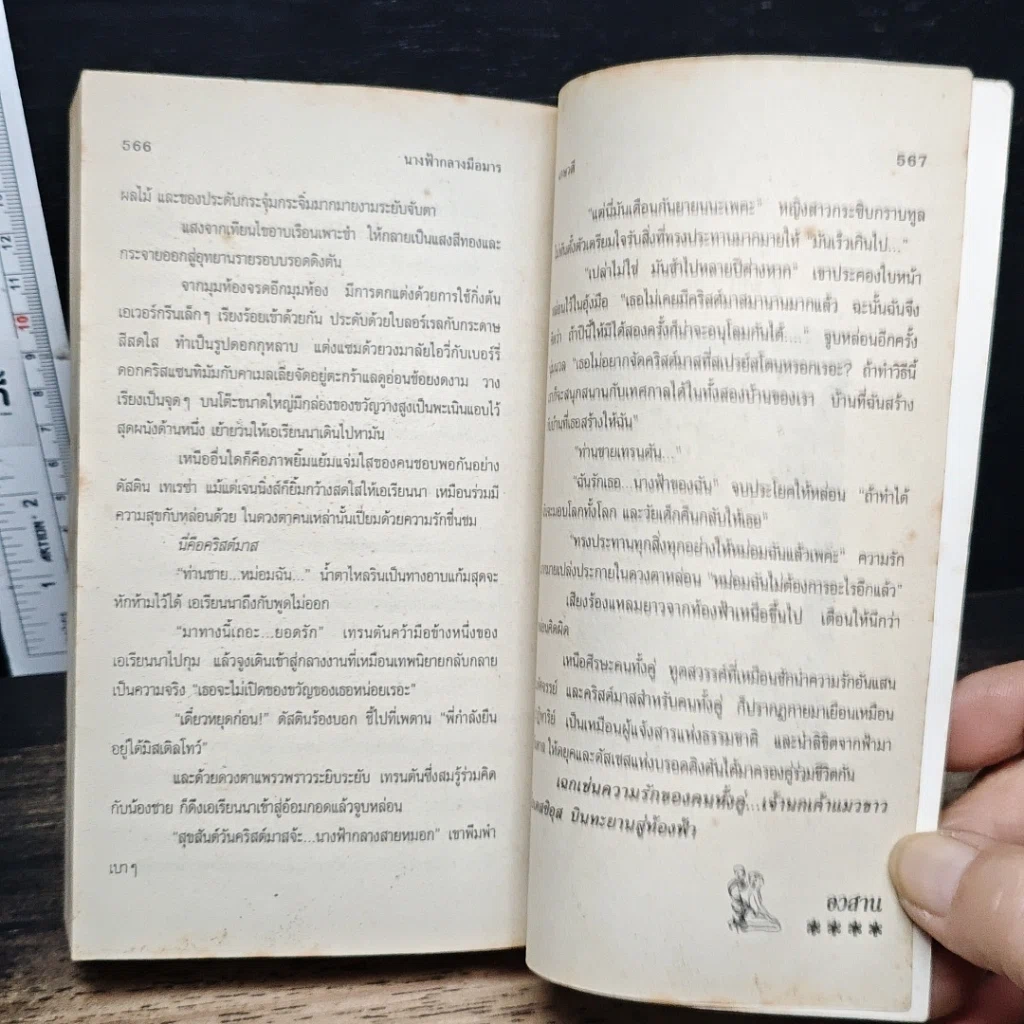 566
นางฟ้ากลางมือมาร
ผลไม้ และของประดับกระจุ๋มกระจิ๋มมากมายงามระยับจับตา
แสงจากเทียนไขอาบเรือนเพาะชำ ให้กลายเป็นแสงสีทองและ
กระจายออกสู่อุทยานรายรอบบรอดดิงตัน
จากมุมห้องจรดอีกมุมห้อง มีการตกแต่งด้วยการใช้กิ่งต้น
เอเวอร์กรีนเล็กๆ เรียงร้อยเข้าด้วยกัน ประดับด้วยใบลอร์เรลกับกระดาษ
สีสดใส ทำเป็นรูปดอกกุหลาบ แต่งแซมด้วยวงมาลัยไอวี่กับเบอร์รี่
ดอกคริสแซนทิมัมกับคาเมลเลียจัดอยู่ตะกร้าแลดูอ่อนช้อยงดงาม วาง
เรียงเป็นจุดๆ บนโต๊ะขนาดใหญ่มีกล่องของขวัญวางสูงเป็นพะเนินแอบไว้
สุดผนังด้านหนึ่ง เย้ายวนให้เอเรียนนาเดินไปหามัน
เหนืออื่นใดก็คือภาพยิ้มแย้มแจ่มใสของคนชอบพอกันอย่าง
ดัสติน เทเรซ่า แม้แต่เจนนิ่งส์ก็ยิ้มกว้างสดใสให้เอเรียนนา เหมือนร่วมมี
ความสุขกับหล่อนด้วย ในดวงตาคนเหล่านั้นเปี่ยมด้วยความรักชื่นชม
นี่คือคริสต์มาส
"ท่านชาย...หม่อมฉัน..." น้ำตาไหลรินเป็นทางอาบแก้มสุดจะ
หักห้ามไว้ได้ เอเรียนนาถึงกับพูดไม่ออก
"มาทางนี้เถอะ...ยอดรัก" เทรนตันคว้ามือข้างหนึ่งของ
เอเรียนนาไปกุม แล้วจูงเดินเข้าสู่กลางงานที่เหมือนเทพนิยายกลับกลาย
เป็นความจริง "เธอจะไม่เปิดของขวัญของเธอหน่อยเรอะ"
"เดี๋ยวหยุดก่อน!" ดัสตินร้องบอก ชี้ไปที่เพดาน "พี่กำลังยืน
อยู่ใต้มิสเติลโทว์"
และด้วยดวงตาแพรวพราวระยิบระยับ เทรนตันซึ่งสมรู้ร่วมคิด
กับน้องชาย ก็ดึงเอเรียนนาเข้าสู่อ้อมกอดแล้วจูบหล่อน
"สุขสันต์วันคริสต์มาสจ้ะ...นางฟ้ากลางสายหมอก" เขาพึมพำ
เบาๆ
567
"แต่นี่มันเดือนกันยายนนะเพคะ" หญิงสาวกระซิบกราบทูล
ไม่ทันตั้งตัวเตรียมใจรับสิ่งที่ทรงประทานมากมายให้ "มันเร็วเกินไป..."
"เปล่าไม่ใช่ มันช้าไปหลายปีต่างหาก" เขาประคองใบหน้า
หล่อนไว้ในอุ้งมือ "เธอไม่เคยมีคริสต์มาสมานานมากแล้ว ฉะนั้นฉันจึง
ถ้าปีนี้ให้มีได้สองครั้งก็น่าจะอนุโลมกันได้...." จูบหล่อนอีกครั้ง
"เธอไม่อยากจัดคริสต์มาสที่สเปวย์สโตนหรอกเรอะ? ถ้าทำวิธีนี้
เราก็จะสนุกสนานกับเทศกาลได้ในทั้งสองบ้านของเรา บ้านที่ฉันสร้าง
บ้านที่เธอสร้างให้ฉัน"
"ท่านชายเทรนตัน..."
"ฉันรักเธอ...นางฟ้าของฉัน" จบประโยคให้หล่อน "ถ้าทำได้
จะมอบโลกทั้งโลก และวัยเด็กคืนกลับให้เธอ"
"ทรงประทานทุกสิ่งทุกอย่างให้หม่อมฉันแล้วเพคะ" ความรัก
มากมายเปล่งประกายในดวงตาหล่อน "หม่อมฉันไม่ต้องการอะไรอีกแล้ว"
เสียงร้องแหลมยาวจากท้องฟ้าเหนือขึ้นไป เตือนให้นึกว่า
คิดผิด
เหนือศีรษะคนทั้งคู่ ทูตสวรรค์ที่เหมือนชักนำความรักอันแสน
และคริสต์มาสสำหรับคนทั้งคู่ ก็ปรากฏกายมาเยือนเหมือน
เป็นเหมือนผู้แจ้งสารแห่งธรรมชาติ และนำลิขิตจากฟ้ามา
ให้ดยุคและดัสเชสแห่งบรอดดิงตันได้มาครองคู่ร่วมชีวิตกัน
เฉกเช่นความรักของคนทั้งคู่...เจ้านกเค้าแมวขาว
บินทะยานสู่ท้องฟ้า
อวสาน